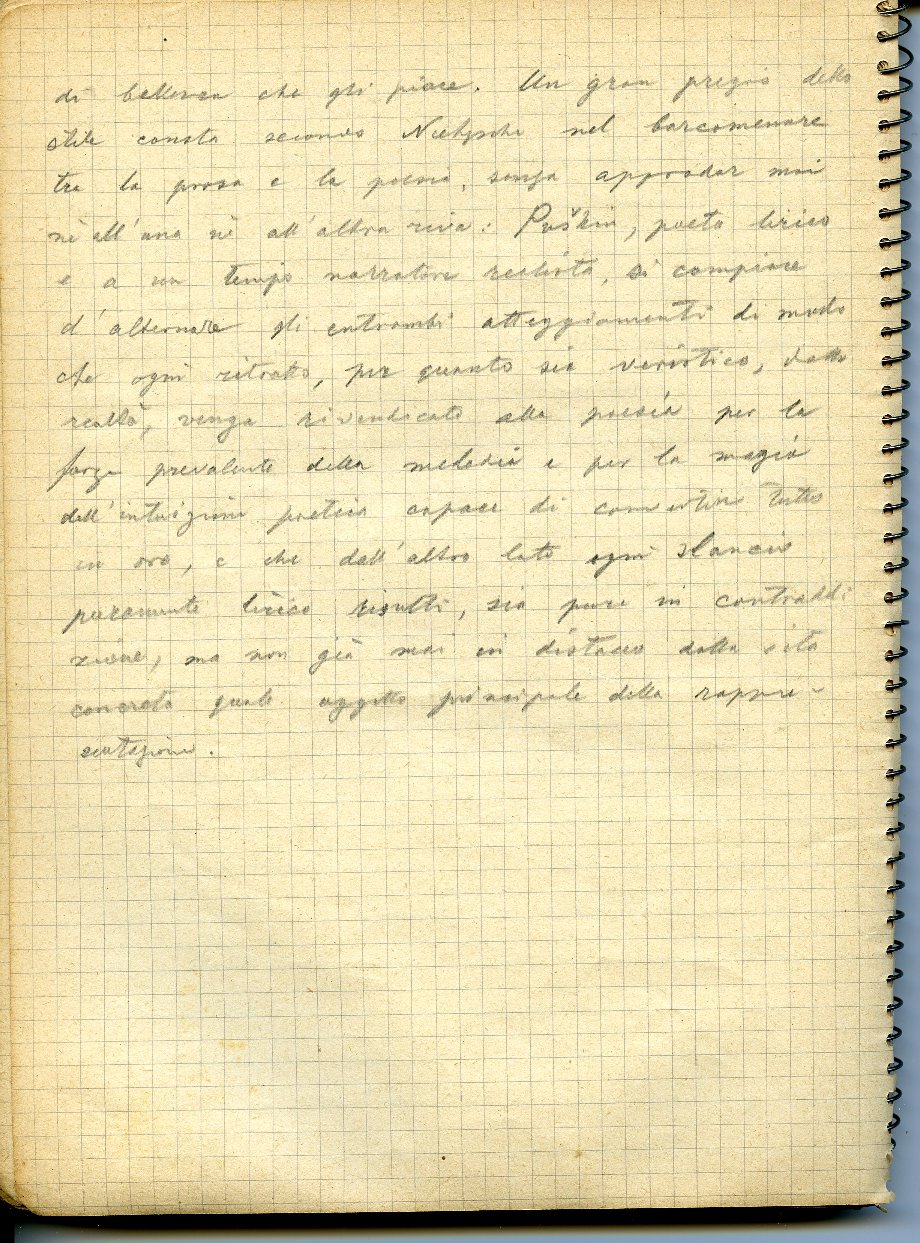 di bellezza che gli piace. Un gran pregio dello
stile consta secondo Nietzsche nel barcamenare
tra la prosa e la poesia, senza approdar mai
nè all'una nè all'altra riva: Puškin, poeta lirico
e a un tempo narratore realista, si compiace
d'alternare gli entrambi atteggiamenti di modo
che ogni ritratto, per quanto sia veristico, dalla
realtà, venga rivendicato alla poesia per la
forza prevalente della melodia e per la magia
dell'intuizione poetica capace di convertire tutto
in oro, e che dall'altro lato ogni slancio
puramente lirico risulti, sia pure in contraddi
zione, ma non già mai in distacco dalla vita
concreta quale oggetto principale della rappre-
sentazione.